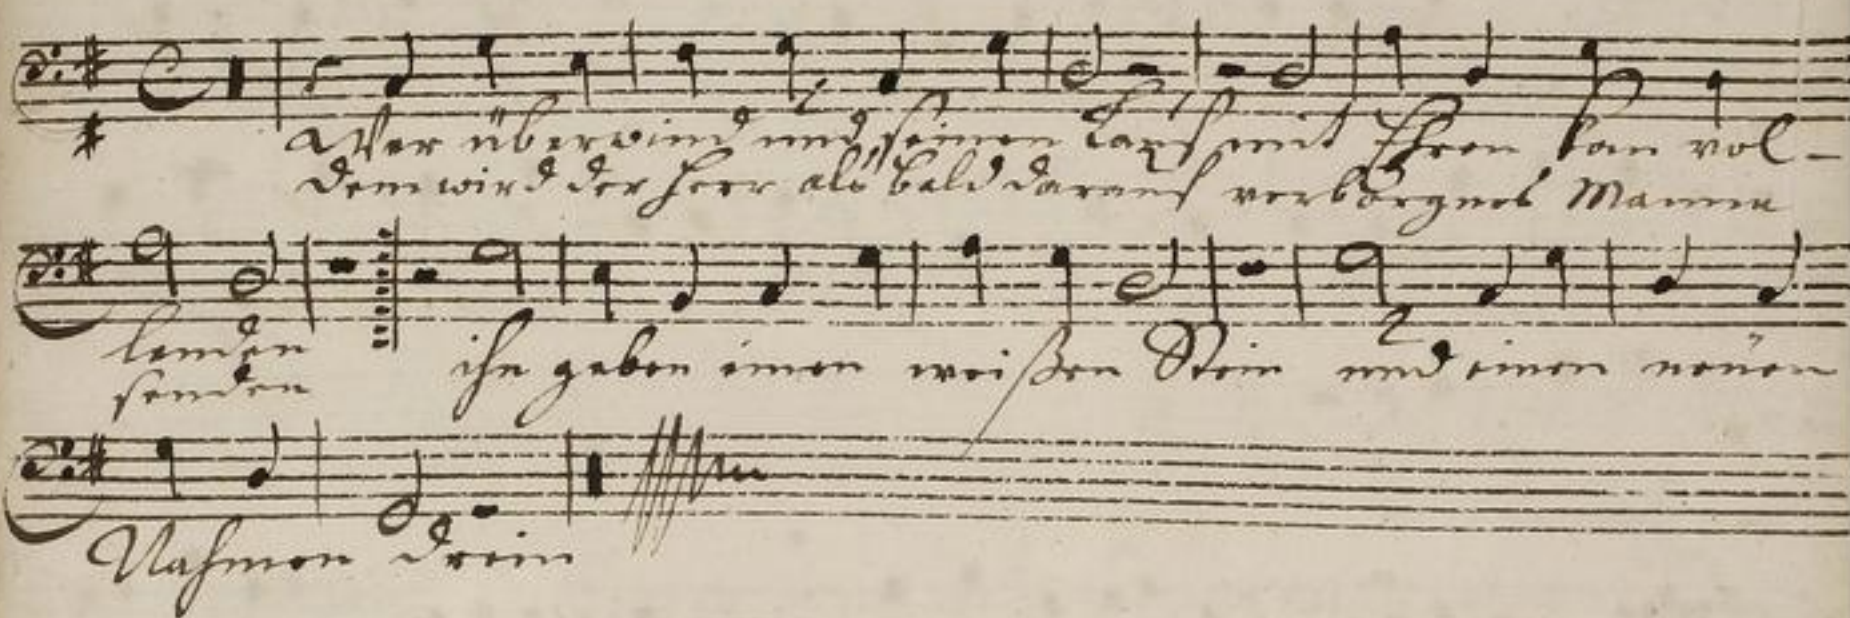 Wer überwind und seinen Lauf mit Ehren kan vol-
dem wird der Herr als bald darauf verborgnes Manna
lenden
senden
ihn geben einen weißen Stein und einen neuen
Nahmen drein